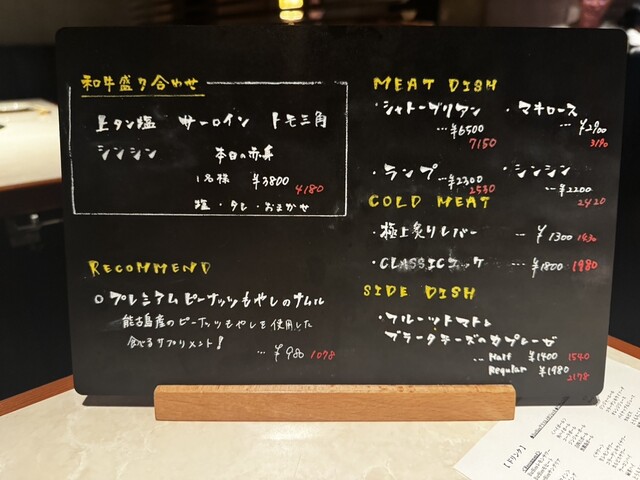 和牛盛り合わせ
上タン塩 サーロイン トモ三角
シンシン 本日の赤身
1名様 ¥3800 4180
塩・タレ・おまかせ
RECOMMEND
○プレミアムピーナッツもやしのナムル
能古島産のピーナッツもやしを使用した
食べるサプリメント!
… ¥980 1078
MEAT DISH
・シャトーブリアン
… ¥6500
7150
・マキロース
… ¥2900
3190
・ランプ
… ¥2300
2530
・シンシン
… ¥2200
2420
COLD MEAT
・極上炙りレバー … ¥1300 1430
・CLASSICユッケ … ¥1800 1980
SIDE DISH
・フルーツトマト
ブラータチーズのカプレーゼ
… Half ¥1400 1540
Regular ¥1980
2178
【ドリンク】